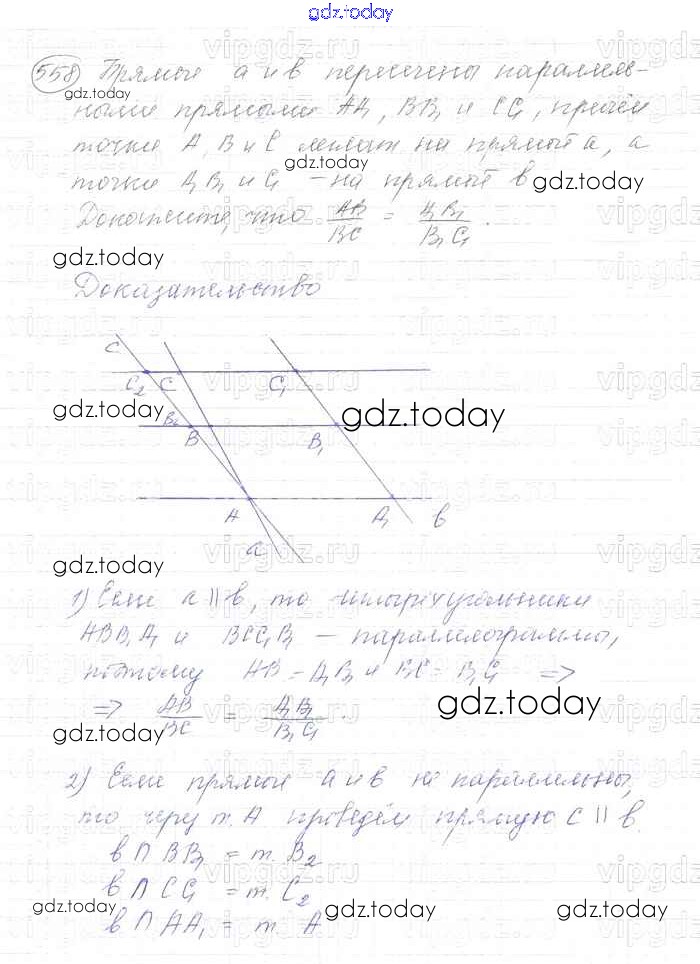 gdz.today
558) Прямые a и в пересечены параллель-
gdz.today
ными прямыми AA₁, BB₁ и CC₁, причём
точки A, B и C лежат на прямой a, а
gdz.today
точки A₁ B₁ и C₁ – на прямой в
gdz.today
Докажите, что AB/BC = A₁B₁/B₁C₁.
gdz.today
Доказательство
C
C₂ C C₁
gdz.today
gdz.today
B₂
B B₁
A A₁ в
a
gdz.today
1) Если a || в, то четырёхугольники
ABB₁A₁ и BCC₁B₁ – параллелограммы,
поэтому AB = A₁B₁ и BC = B₁C₁ =>
gdz.today
=> AB/BC = A₁B₁/B₁C₁.
gdz.today
2) Если прямые a и в не параллельны,
то через т. A проведём прямую C || в.
в ∩ BB₁ = т. B₂
в ∩ CC₁ = т. C₂
gdz.today
gdz.today
gdz.today
в ∩ AA₁ = т. A
vipgdz.ru